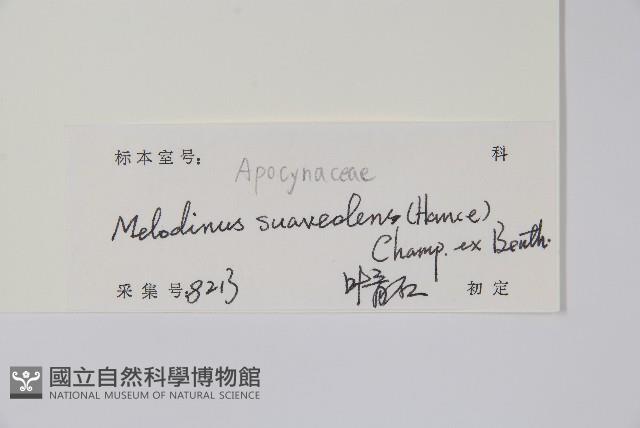 标本室号: 科
Apocynaceae
Melodinus suaveolens (Hance)
Champ. ex Benth.
采集号: 8213 叶育石 初定
國立自然科學博物館
NATIONAL MUSEUM OF NATURAL SCIENCE